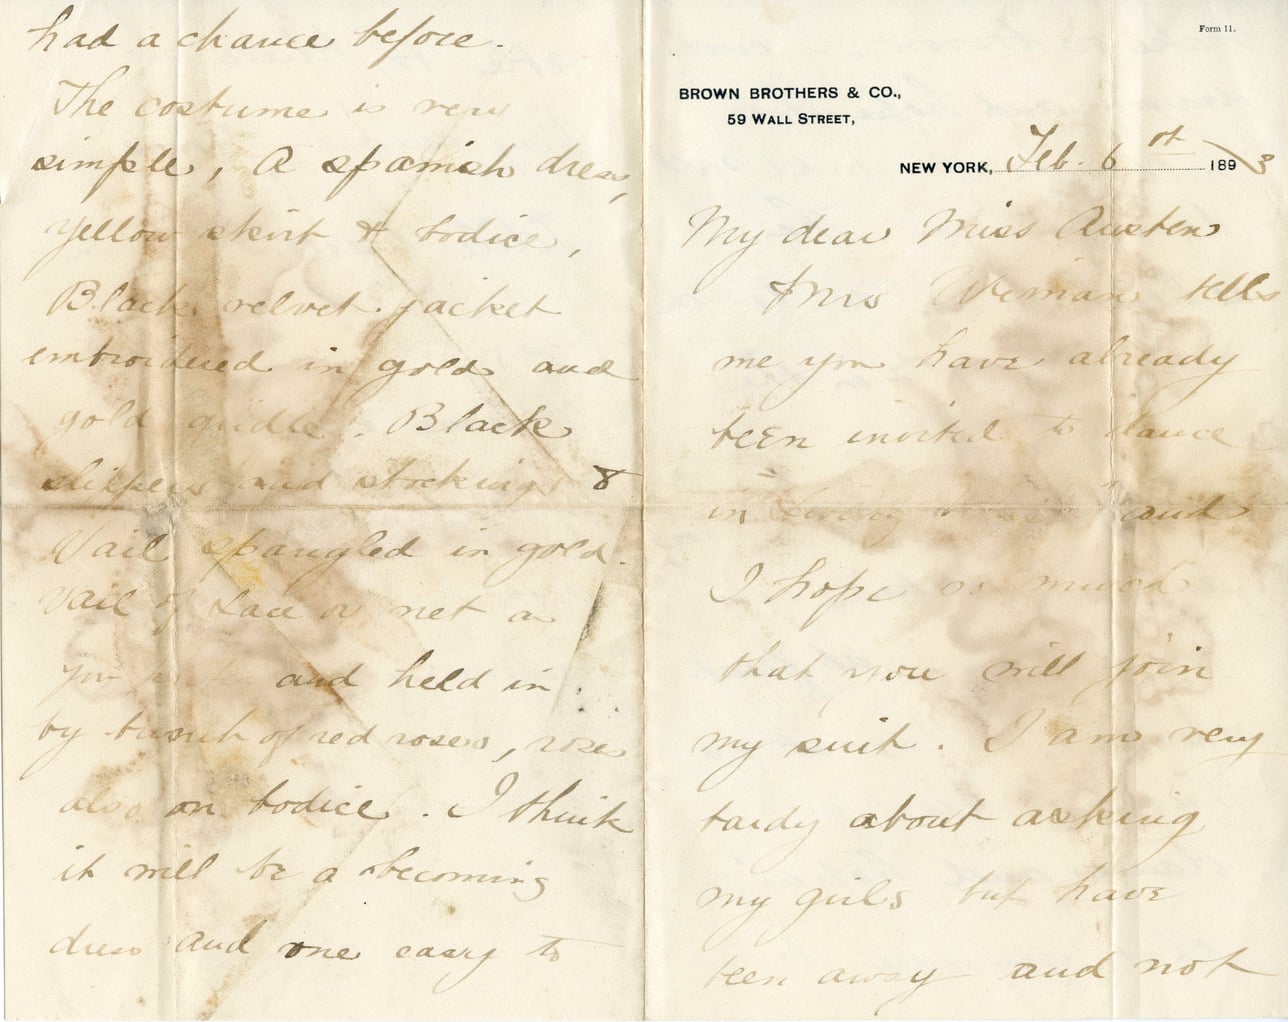 Form 11.
BROWN BROTHERS & CO.,
59 WALL STREET,
NEW YORK, Feb. 6th 1893
My dear Miss Austen
Mrs Weiman tells
me you have already
been invited to dance
in Living and
I hope so much
that you will join
my suit. I am very
tardy about asking
my girls but have
been away and not
had a chance before.
The costume is very
simple, A spanish dress,
yellow skirt & bodice,
Black velvet jacket
embroidered in gold and
gold girdle. Black
slippers and stockings &
Vail spangled in gold.
Vail of Lace or net on
your and held in
by bunch of red roses, roses
also on bodice. I think
it will be a becoming
dress and one easy to